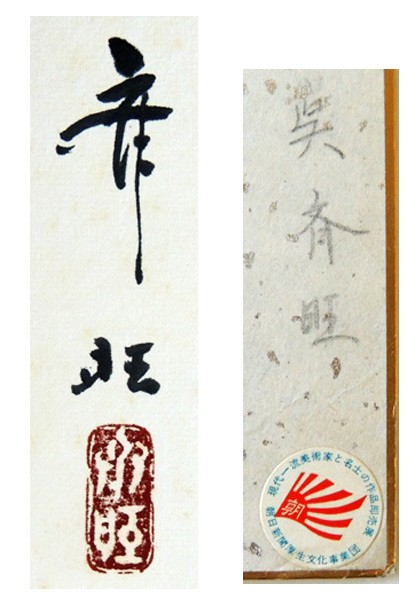 齐旺
齐旺
吳齐旺
現代一流美術家と名士の作品即売展
朝
朝日新聞厚生文化事業団